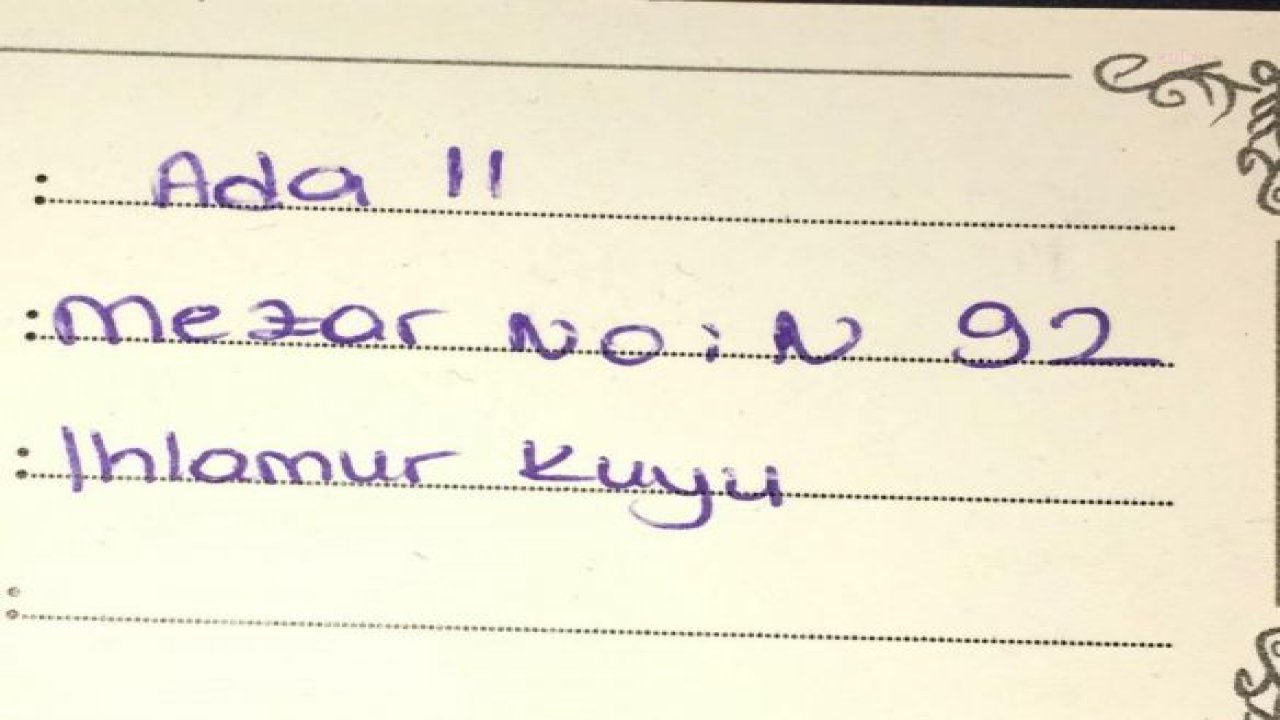 : Ada 11
: Mezar No: N 92
: Ihlamur Kuyu
: